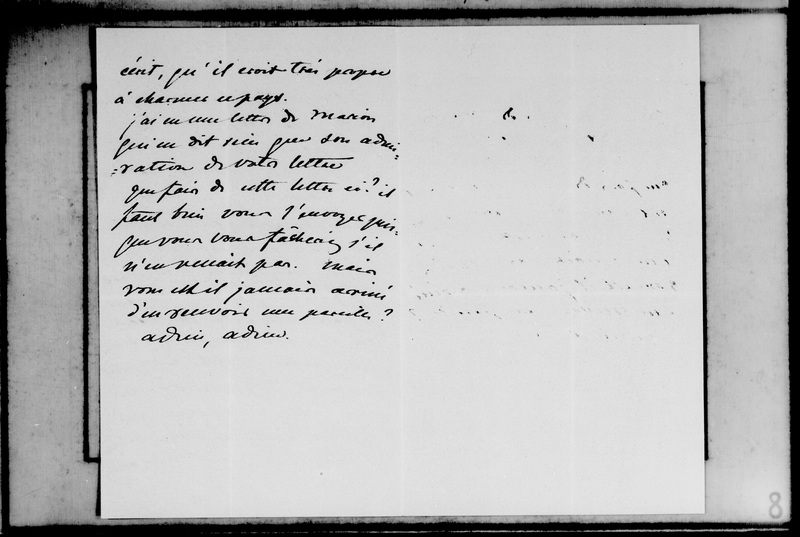 écrit, qu'il croit très propre
à charmer ce pays.
j'ai eu une lettre de Marion
qui ne dit rien que son admi-
-ration de votre lettre
que faire de cette lettre ci? il
faut bien vous l'envoyer puis-
que vous vous fâcheriez s'il
n'en venait pas. Mais
vous est il jamais arrivé
d'en recevoir une pareille?
adieu, adieu.
8